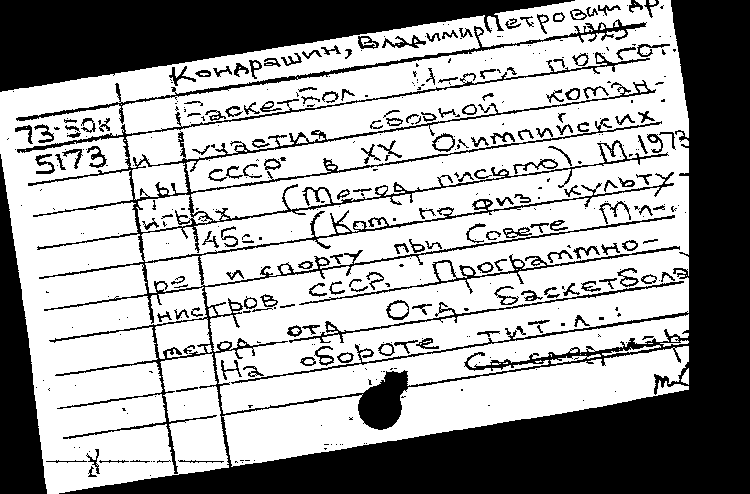 Кондрашин, Владимир Петрович и др.
1929
Баскетбол. Итоги подгот.
73-50к
5173
и участия сборной коман-
ды СССР в XX Олимпийских
играх. (Метод. письмо). М., 1973
45с. (Ком. по физ. культу-
ре и спорту при Совете Ми-
нистров СССР. Программно-
метод. отд. Отд. баскетбола
На обороте тит. л.:
См. след. кар